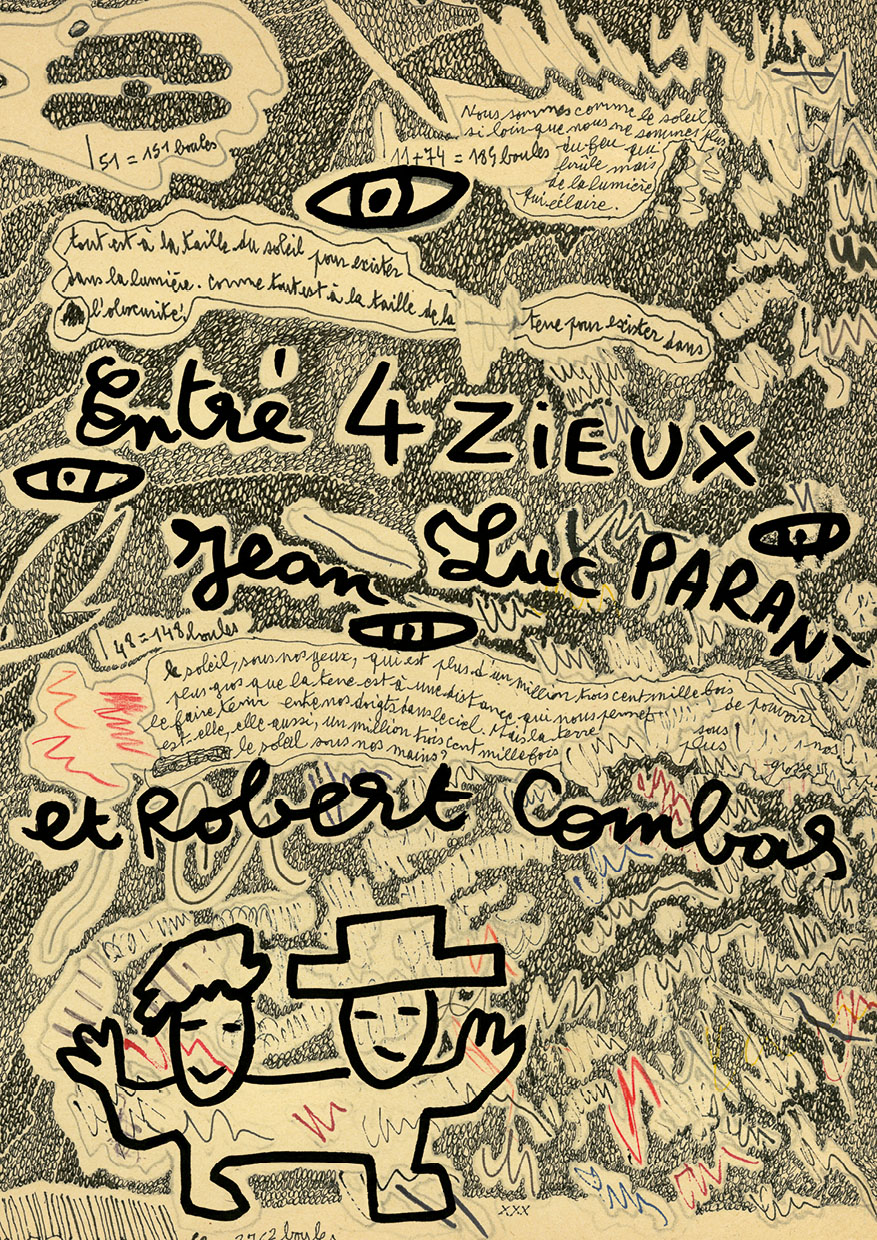 151 = 151 boules
Nous sommes comme le soleil
si loin que nous ne sommes plus
du feu qui
11+74 = 189 boules
brûle mais
de la lumière
qui éclaire.
tout est à la taille du soleil pour exister
dans la lumière. comme tout est à la taille de la
terre pour exister dans
l'obscurité.
Entré 4 ZiEUX
Jean Luc PARANT
148 = 148 boules
le soleil, sous nos yeux, qui est plus d'un million trois cent mille fois
plus gros que la terre est à une distance qui nous permet de pouvoir
le faire tenir entre nos doigts dans le ciel. Mais la terre sous nos
est-elle, elle aussi, un million trois cent mille fois plus grosse
le soleil sous nos mains?
et Robert Combas
xxx
boules